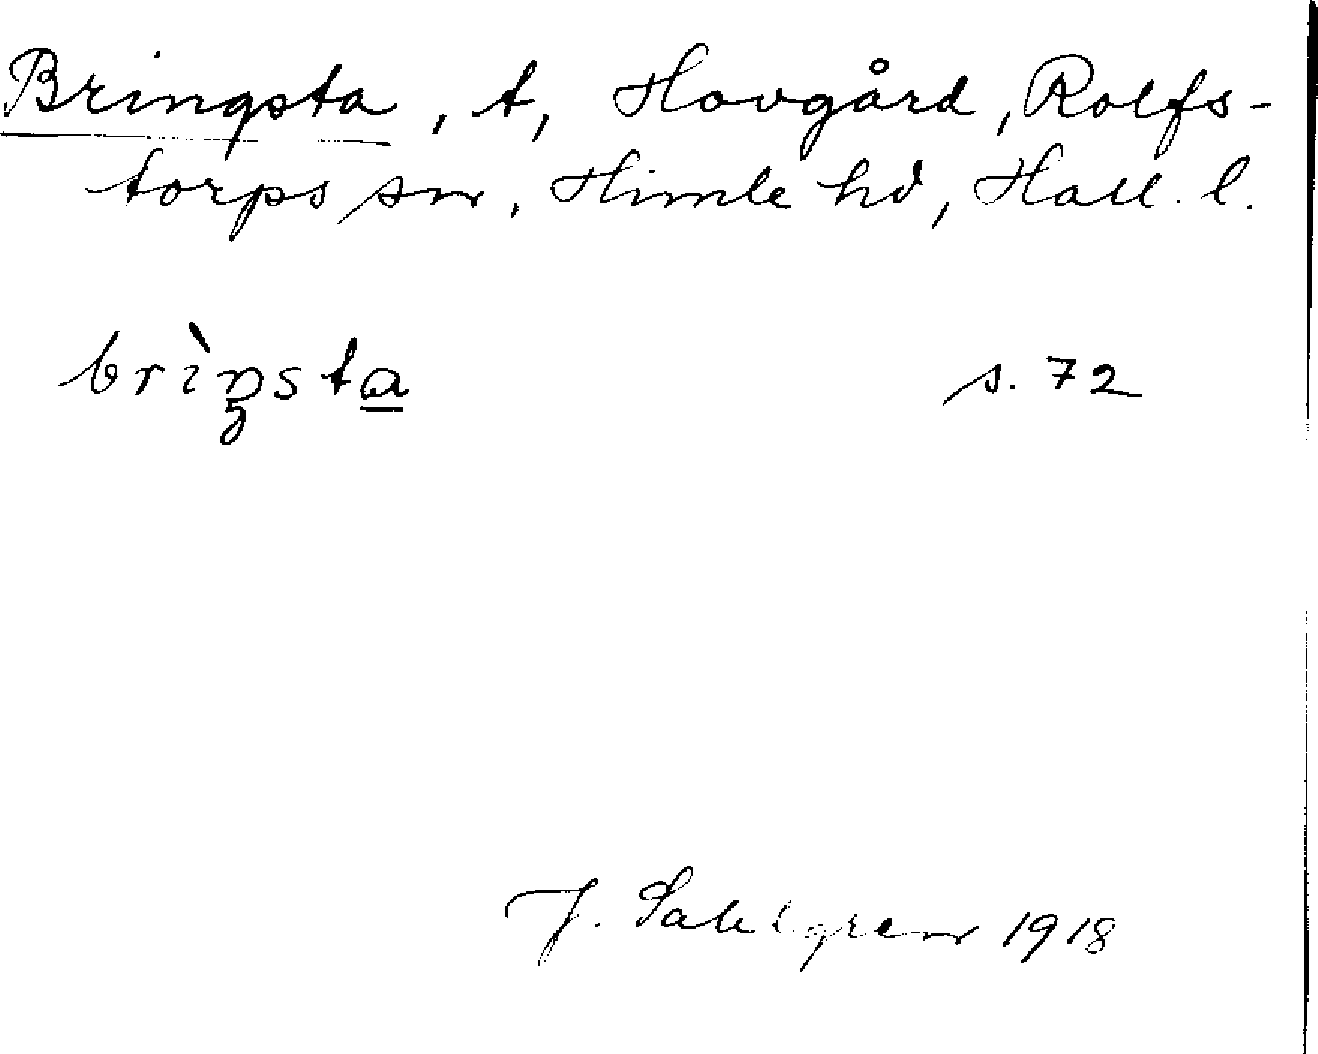 Bringsta, t, Hovgård, Rolfs-
torps sn, Himle hd, Hall. l.
brìŋsta s. 72
J. Sahlgren 1918